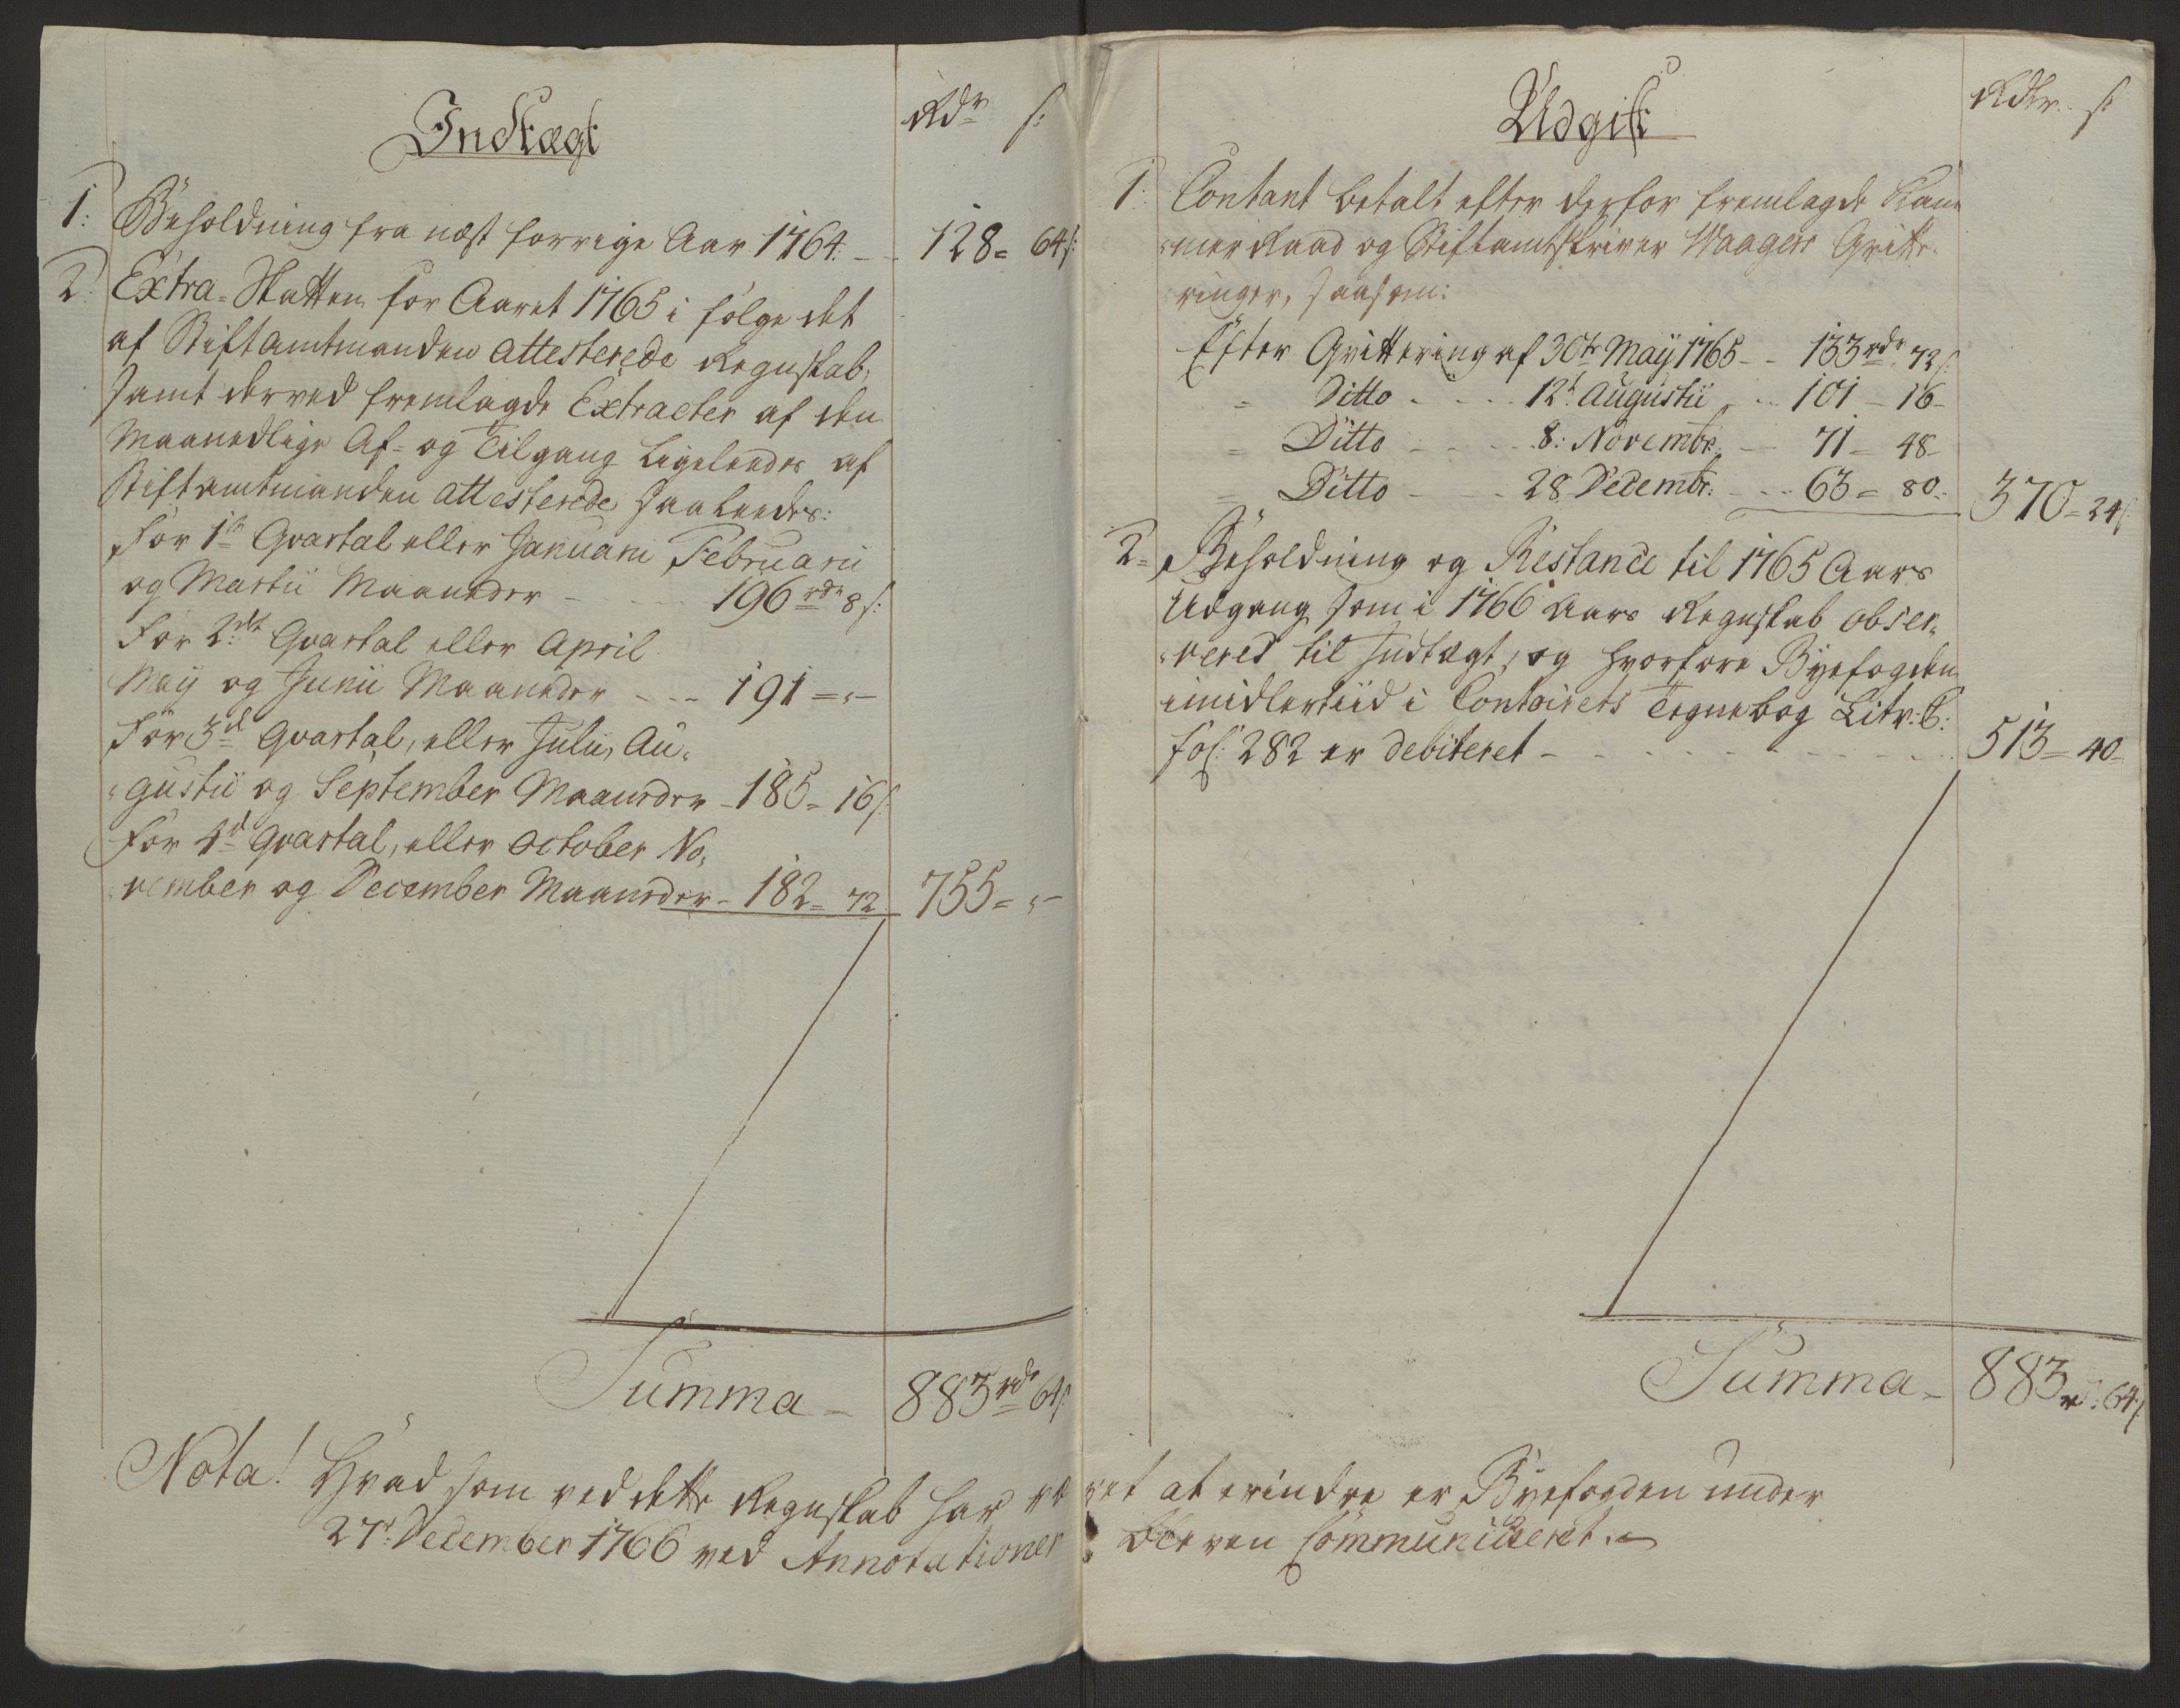 Indtægt
Rdr s:
1. Beholdning fra næst forrige Aar 1764. - - 128 = 64 s:
2. Extra-Skatten for Aaret 1765 i følge det
af Stiftamtmanden attesterede Regnskab,
samt derved fremlagde Extracter af den
Maanedlige Af- og Tilgang ligeleedes af
Stiftamtmanden attesterede saaleedes:
For 1te Qvartal eller Januarii Februarii
og Martii Maaneder - - - 196 rdr 8 s:
For 2det Qvartal eller April
Maÿ og Junii Maaneder - - - 191 = " -
For 3de Qvartal, eller Julii, Au-
"gustii og September Maaneder - 185 = 16 s:
For 4de Qvartal, eller October No-
vember og December Maaneder - 182 = 72 755 = " -
Summa - 883 rdr 64 s:
Udgift
Rdlr. s:
1. Contant betalt efter derfor fremlagde Cam-
"mer Raad og Stiftamtskriver Waagers Qvitte-
ringer, saasom:
Efter Qvittering af 30te Maÿ 1765 - - 133 rdr 72 s:
= Ditto - - - 12t Augustii - - 101 - 16 -
= Ditto - - - 8: Novembr. - - 71 - 48 -
= Ditto - - - 28 Decembr: - - - 63 = 80. 370 = 24 s:
2. Beholdning og Restance til 1765 Aars
Udgang som i 1766 Aars Regnskab obser-
"vered til Indtægt, og hvorfore Byefogden
imidlertiid i Contoirets Tegnebog Litr: C:
fol: 282 er debiteret - - - - - - - 513 - 40 -
Summa - 883 rd: 64 s:
Nota! Hvad som ved dette Regnskab har været at erindre er Byefogden under
27de December 1766 ved Annotationer bleven Communiceret.